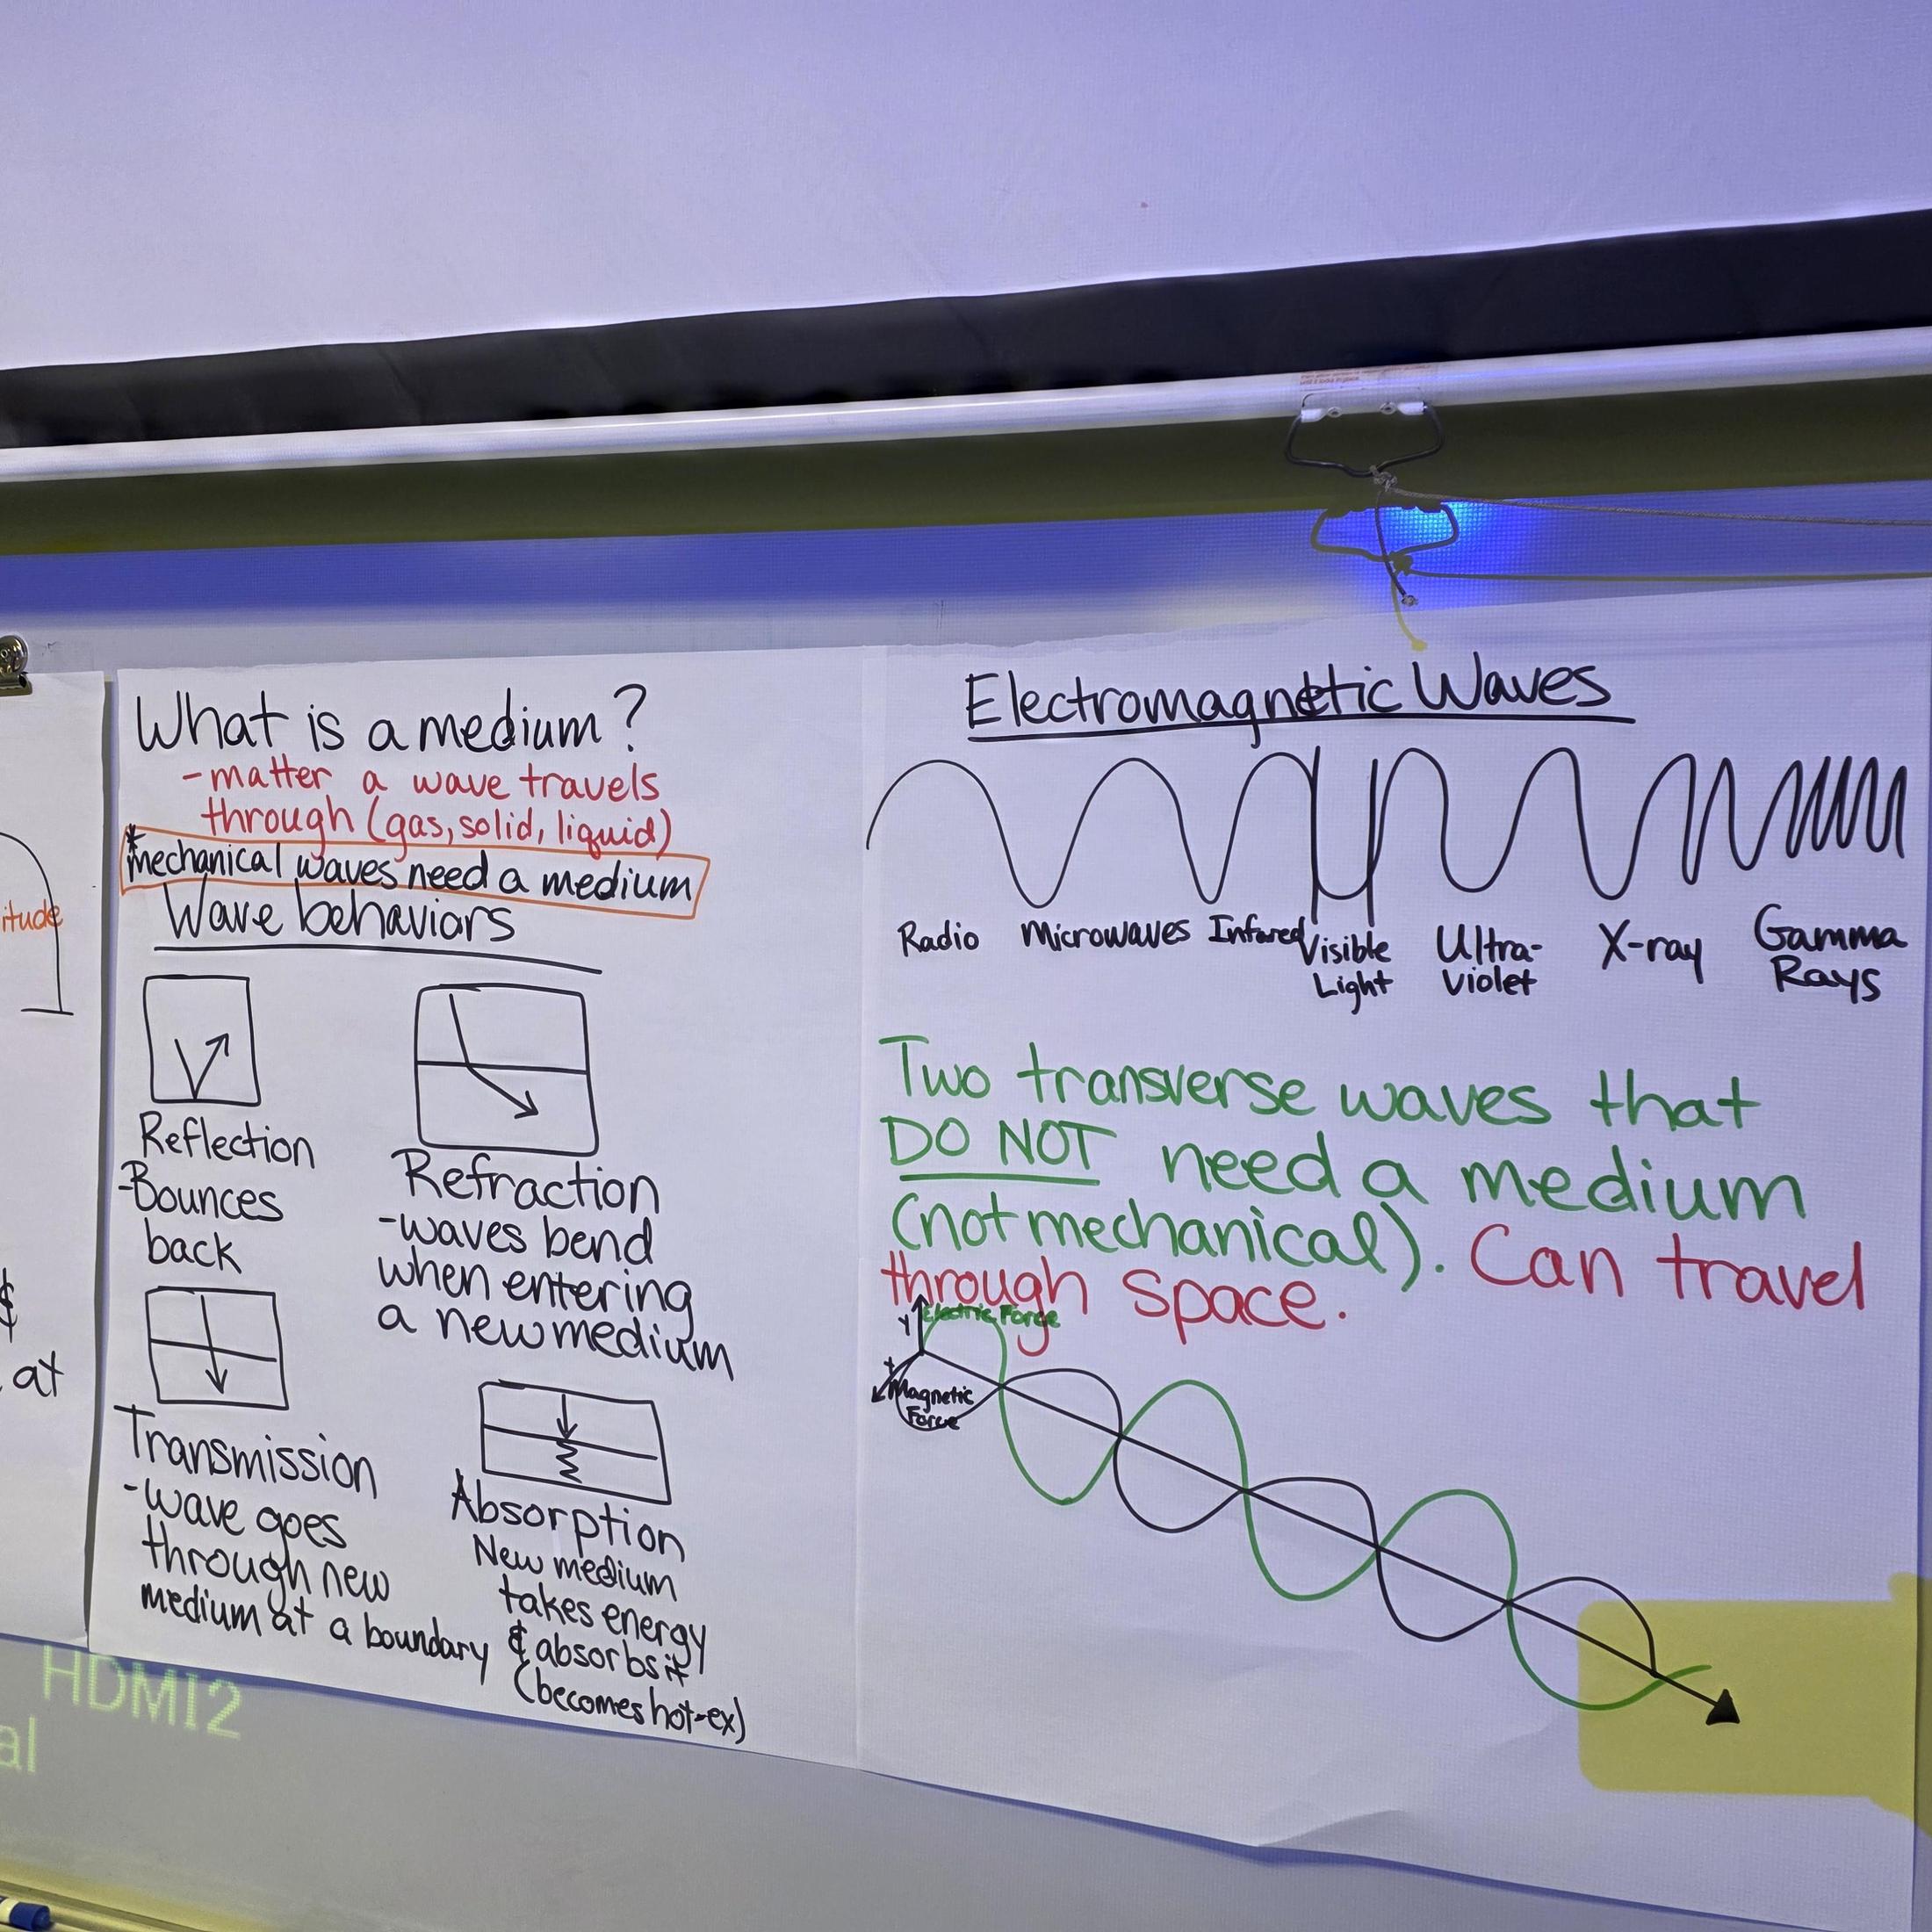 itude
$
at
What is a medium?
-matter a wave travels
through (gas, solid, liquid)
*mechanical waves need a medium
Wave behaviors
Reflection
-Bounces
back
Refraction
-waves bend
when entering
a new medium
Transmission
-wave goes
through new
medium at a boundary
Absorption
New medium
takes energy
& absorbs it
(becomes hot-ex)
Electromagnetic Waves
Radio Microwaves Infared Visible
Light Ultra-
Violet X-ray Gamma
Rays
Two transverse waves that
DO NOT need a medium
(not mechanical). Can travel
through space.
Y Electric Force
Magnetic
Force
HDMI2
al